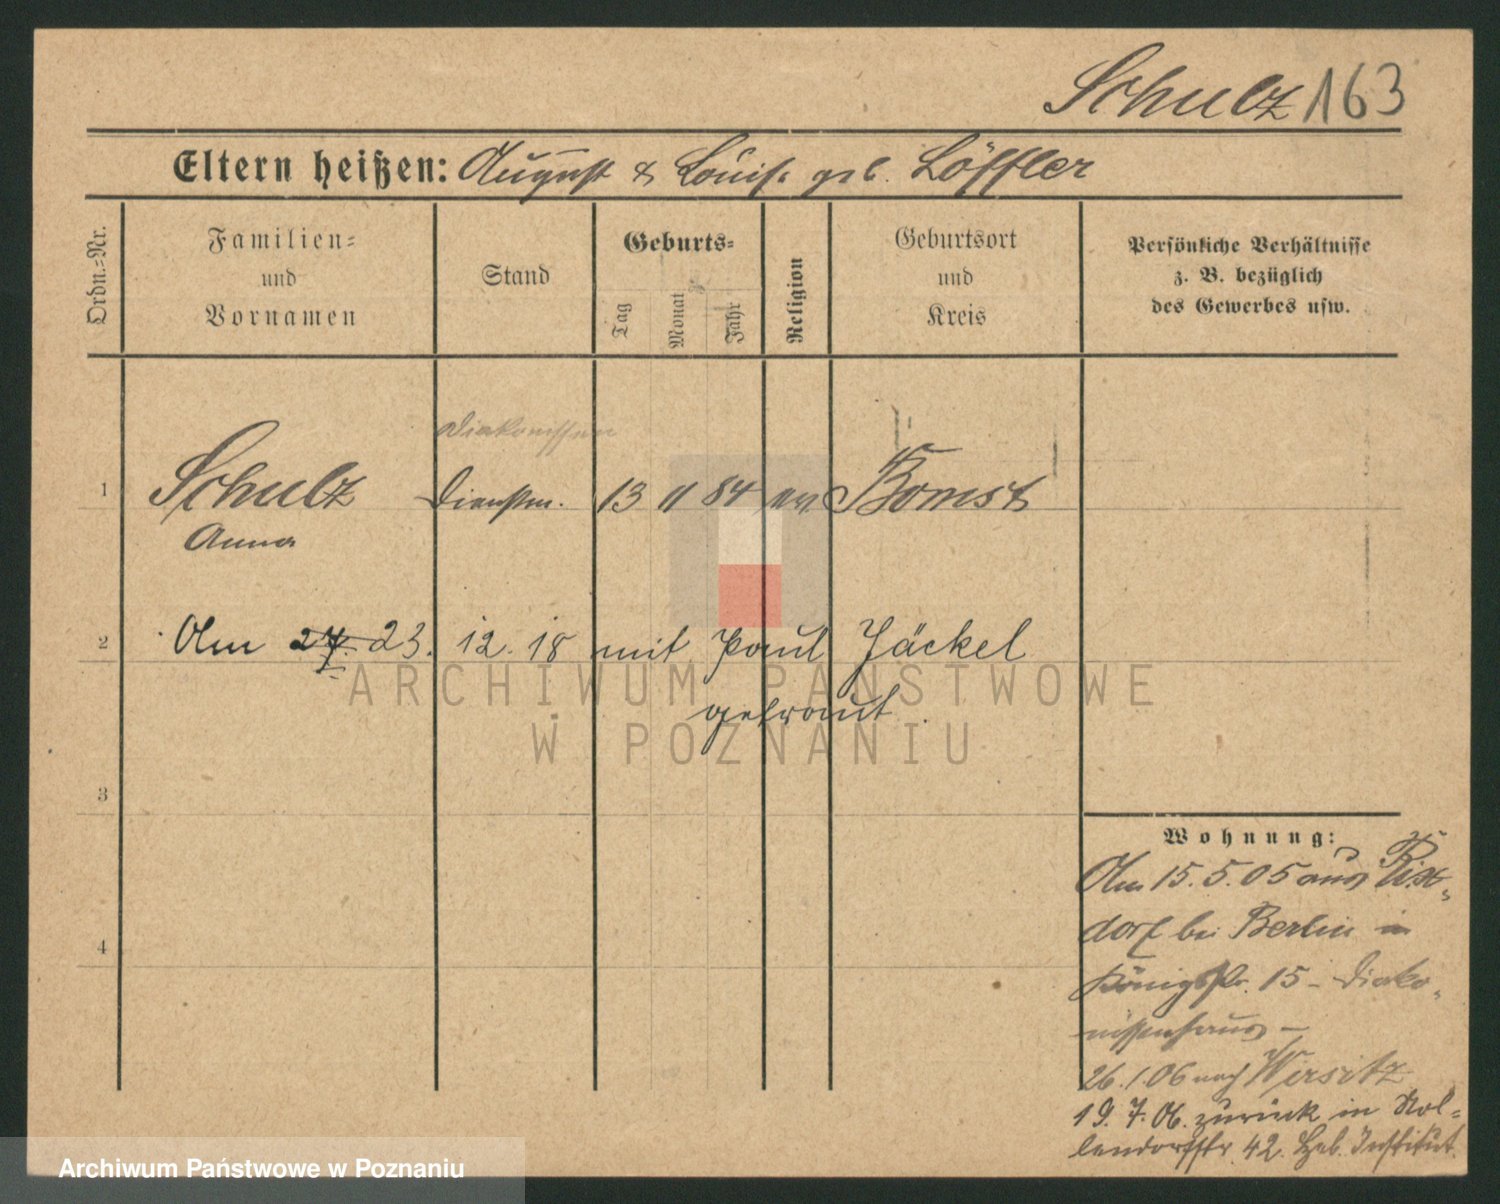 Schulz 163
Eltern heißen: August & Louise geb. Löffler
Ordn.-Nr.
Familien-
und
Vornamen
Stand
Geburts-
Tag
Monat
Jahr
Religion
Geburtsort
und
Kreis
Persönliche Verhältnisse
z. B. bezüglich
des Gewerbes usw.
Diakonissin
1 Schulz Dienstm. 13 11 84 ev. Bomst
Anna
2 Am 27. 23. 12. 18 mit Paul Jäckel
getraut.
3
4
Wohnung:
Am 15.5.05 aus Rix-
dorf bei Berlin in
Königstr. 15 - Diako-
nissenhaus -
26.1.06 nach Wirsitz
19.7.06. zurück in Nol-
lendorfstr. 42. Heb. Institut.
ARCHIWUM PAŃSTWOWE
W POZNANIU
Archiwum Państwowe w Poznaniu